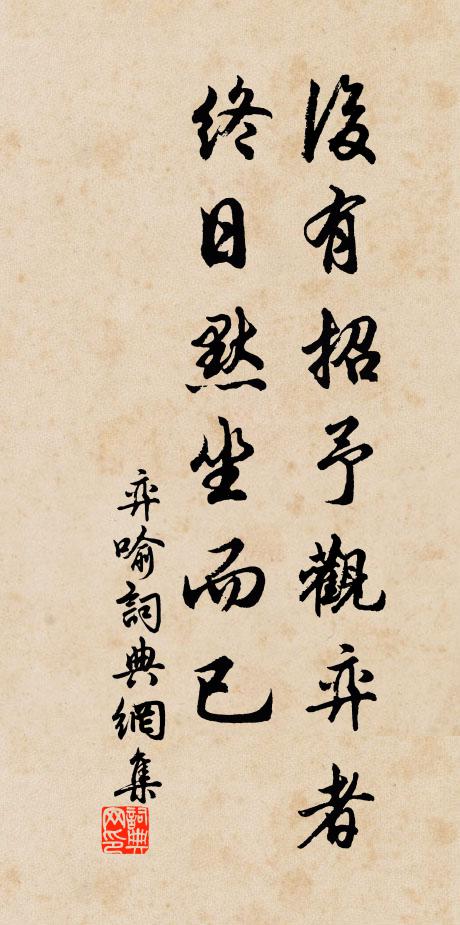 後有招予觀弈者
終日默坐而已
弈喻詞典網集
詞典网印